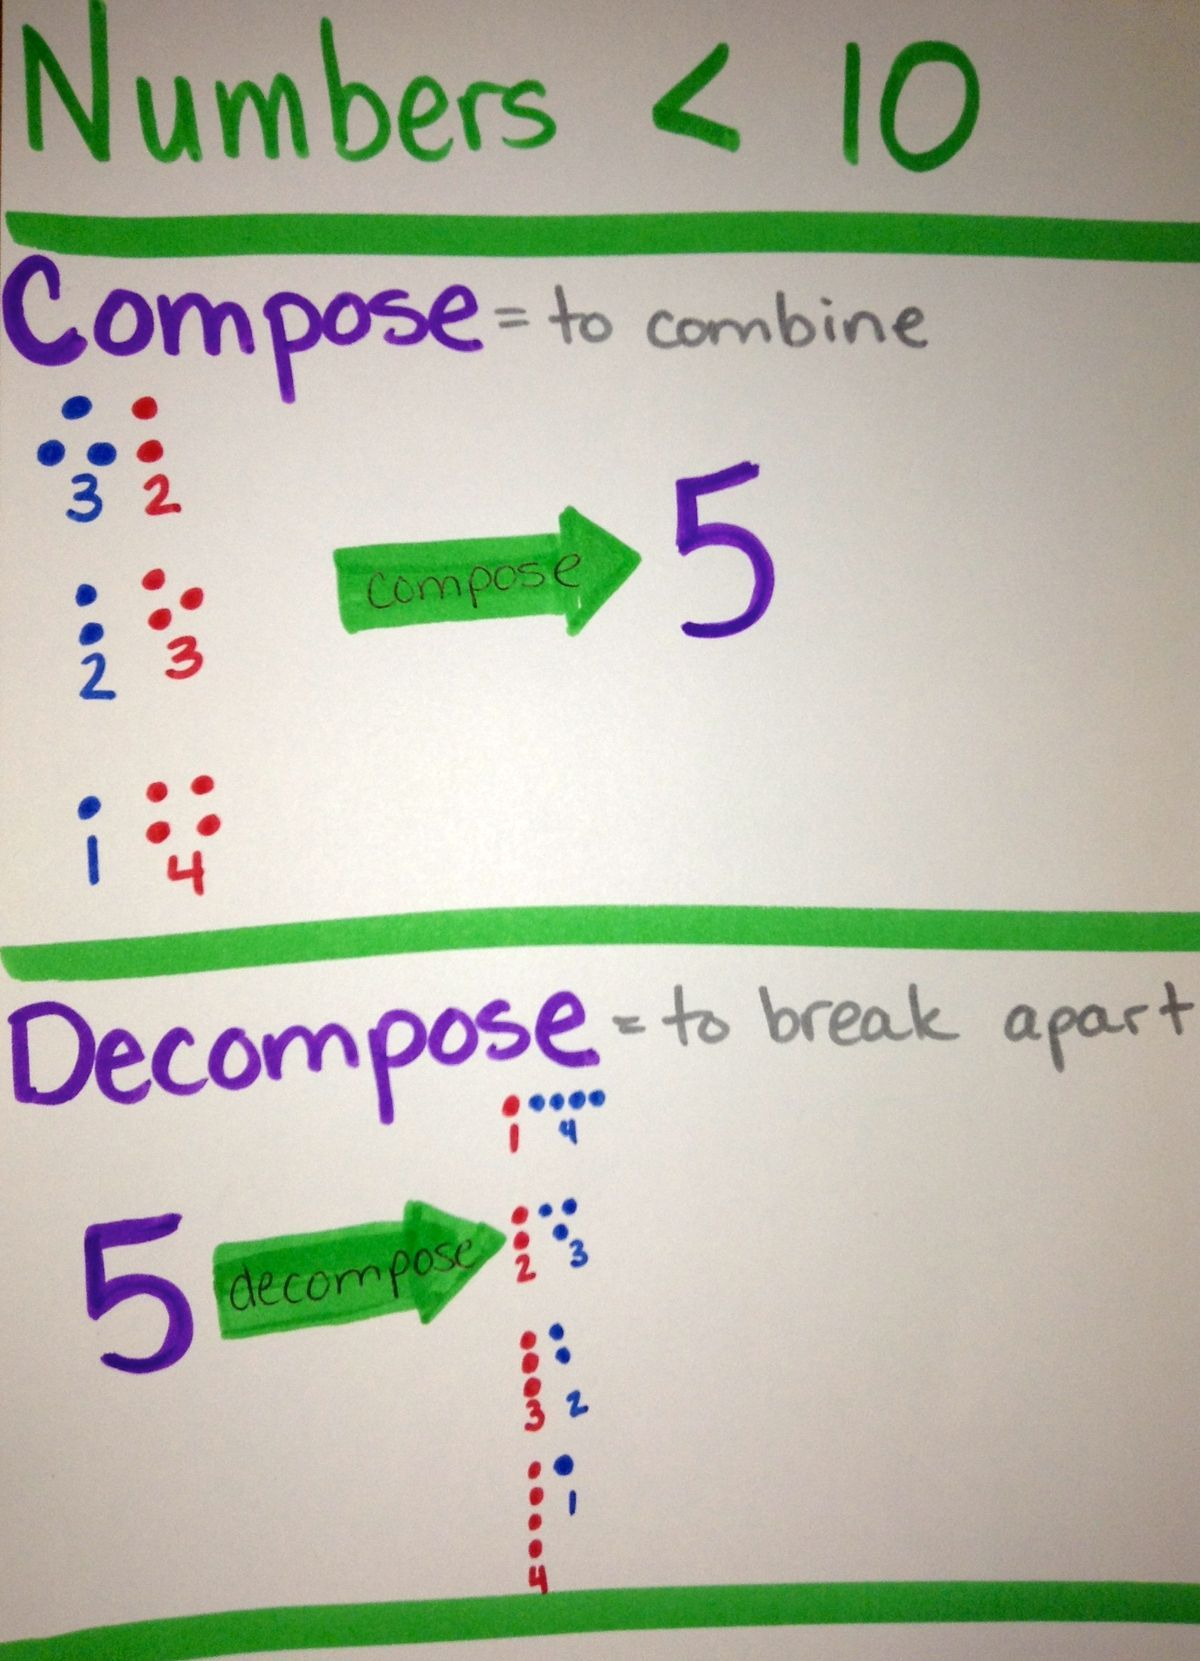 Numbers < 10
Compose = to combine
3 2
compose 5
2 3
1 4
Decompose = to break apart
1 4
5 decompose
2 3
3 2
1
4